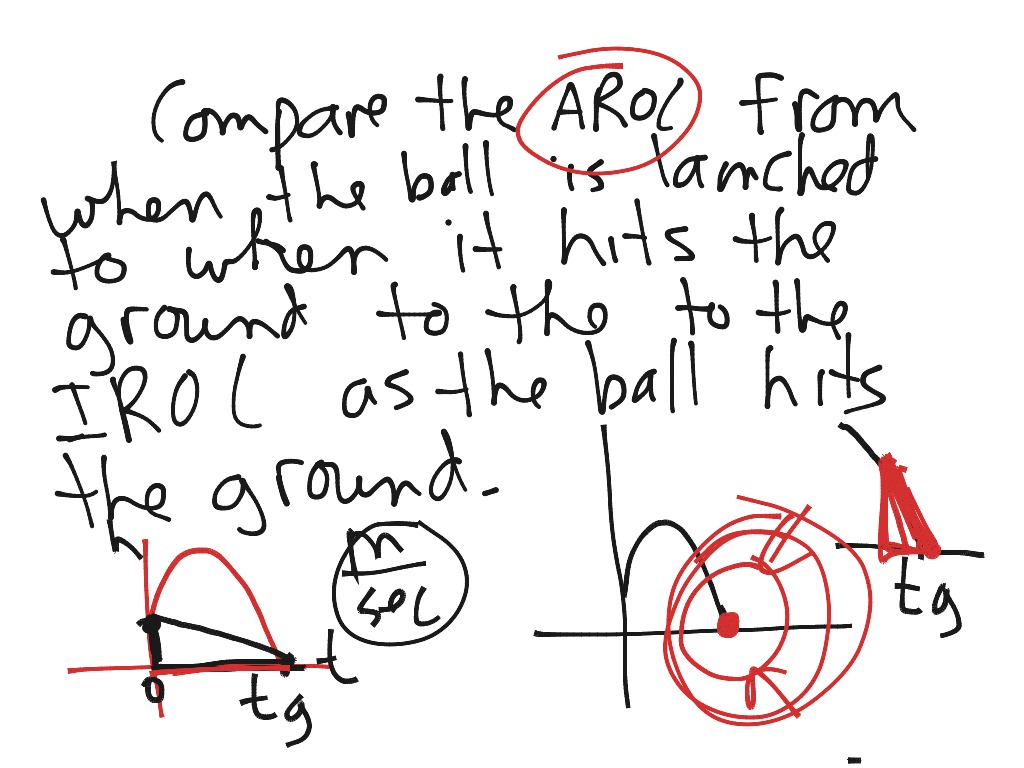 Compare the AROC from
when the ball is lanched
to when it hits the
ground to the to the
IROC as the ball hits
the ground.
h
m
sec
t
0
tg
tg